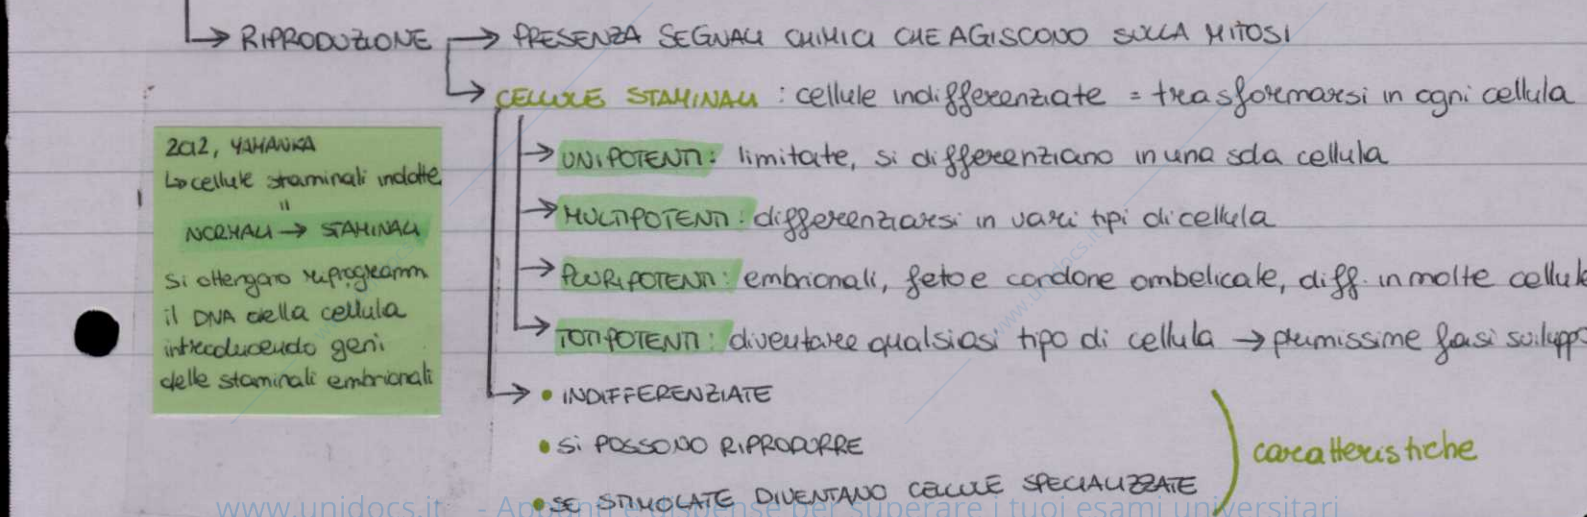 RIPRODUZIONE → PRESENZA SEGNALI CHIMICI CHE AGISCONO SULLA MITOSI
→ CELLULE STAMINALI : cellule indifferenziate = trasformarsi in ogni cellula
→ UNIPOTENTI: limitate, si differenziano in una sola cellula
→ MULTIPOTENTI: differenziarsi in vari tipi di cellula
→ PLURIPOTENTI: embrionali, feto e cordone ombelicale, diff. in molte cellule
→ TOTIPOTENTI: diventare qualsiasi tipo di cellula → primissime fasi sviluppo
→ • INDIFFERENZIATE
• SI POSSONO RIPRODURRE
• SE STIMOLATE DIVENTANO CELLULE SPECIALIZZATE
caratteristiche
2012, YAMANKA
↳ cellule staminali indotte
"
NORMALI → STAMINALI
si ottengono reprogramm
il DNA della cellula
introducendo geni
delle staminali embrionali
www.unidocs.it - Appunti e dispense per superare i tuoi esami universitari